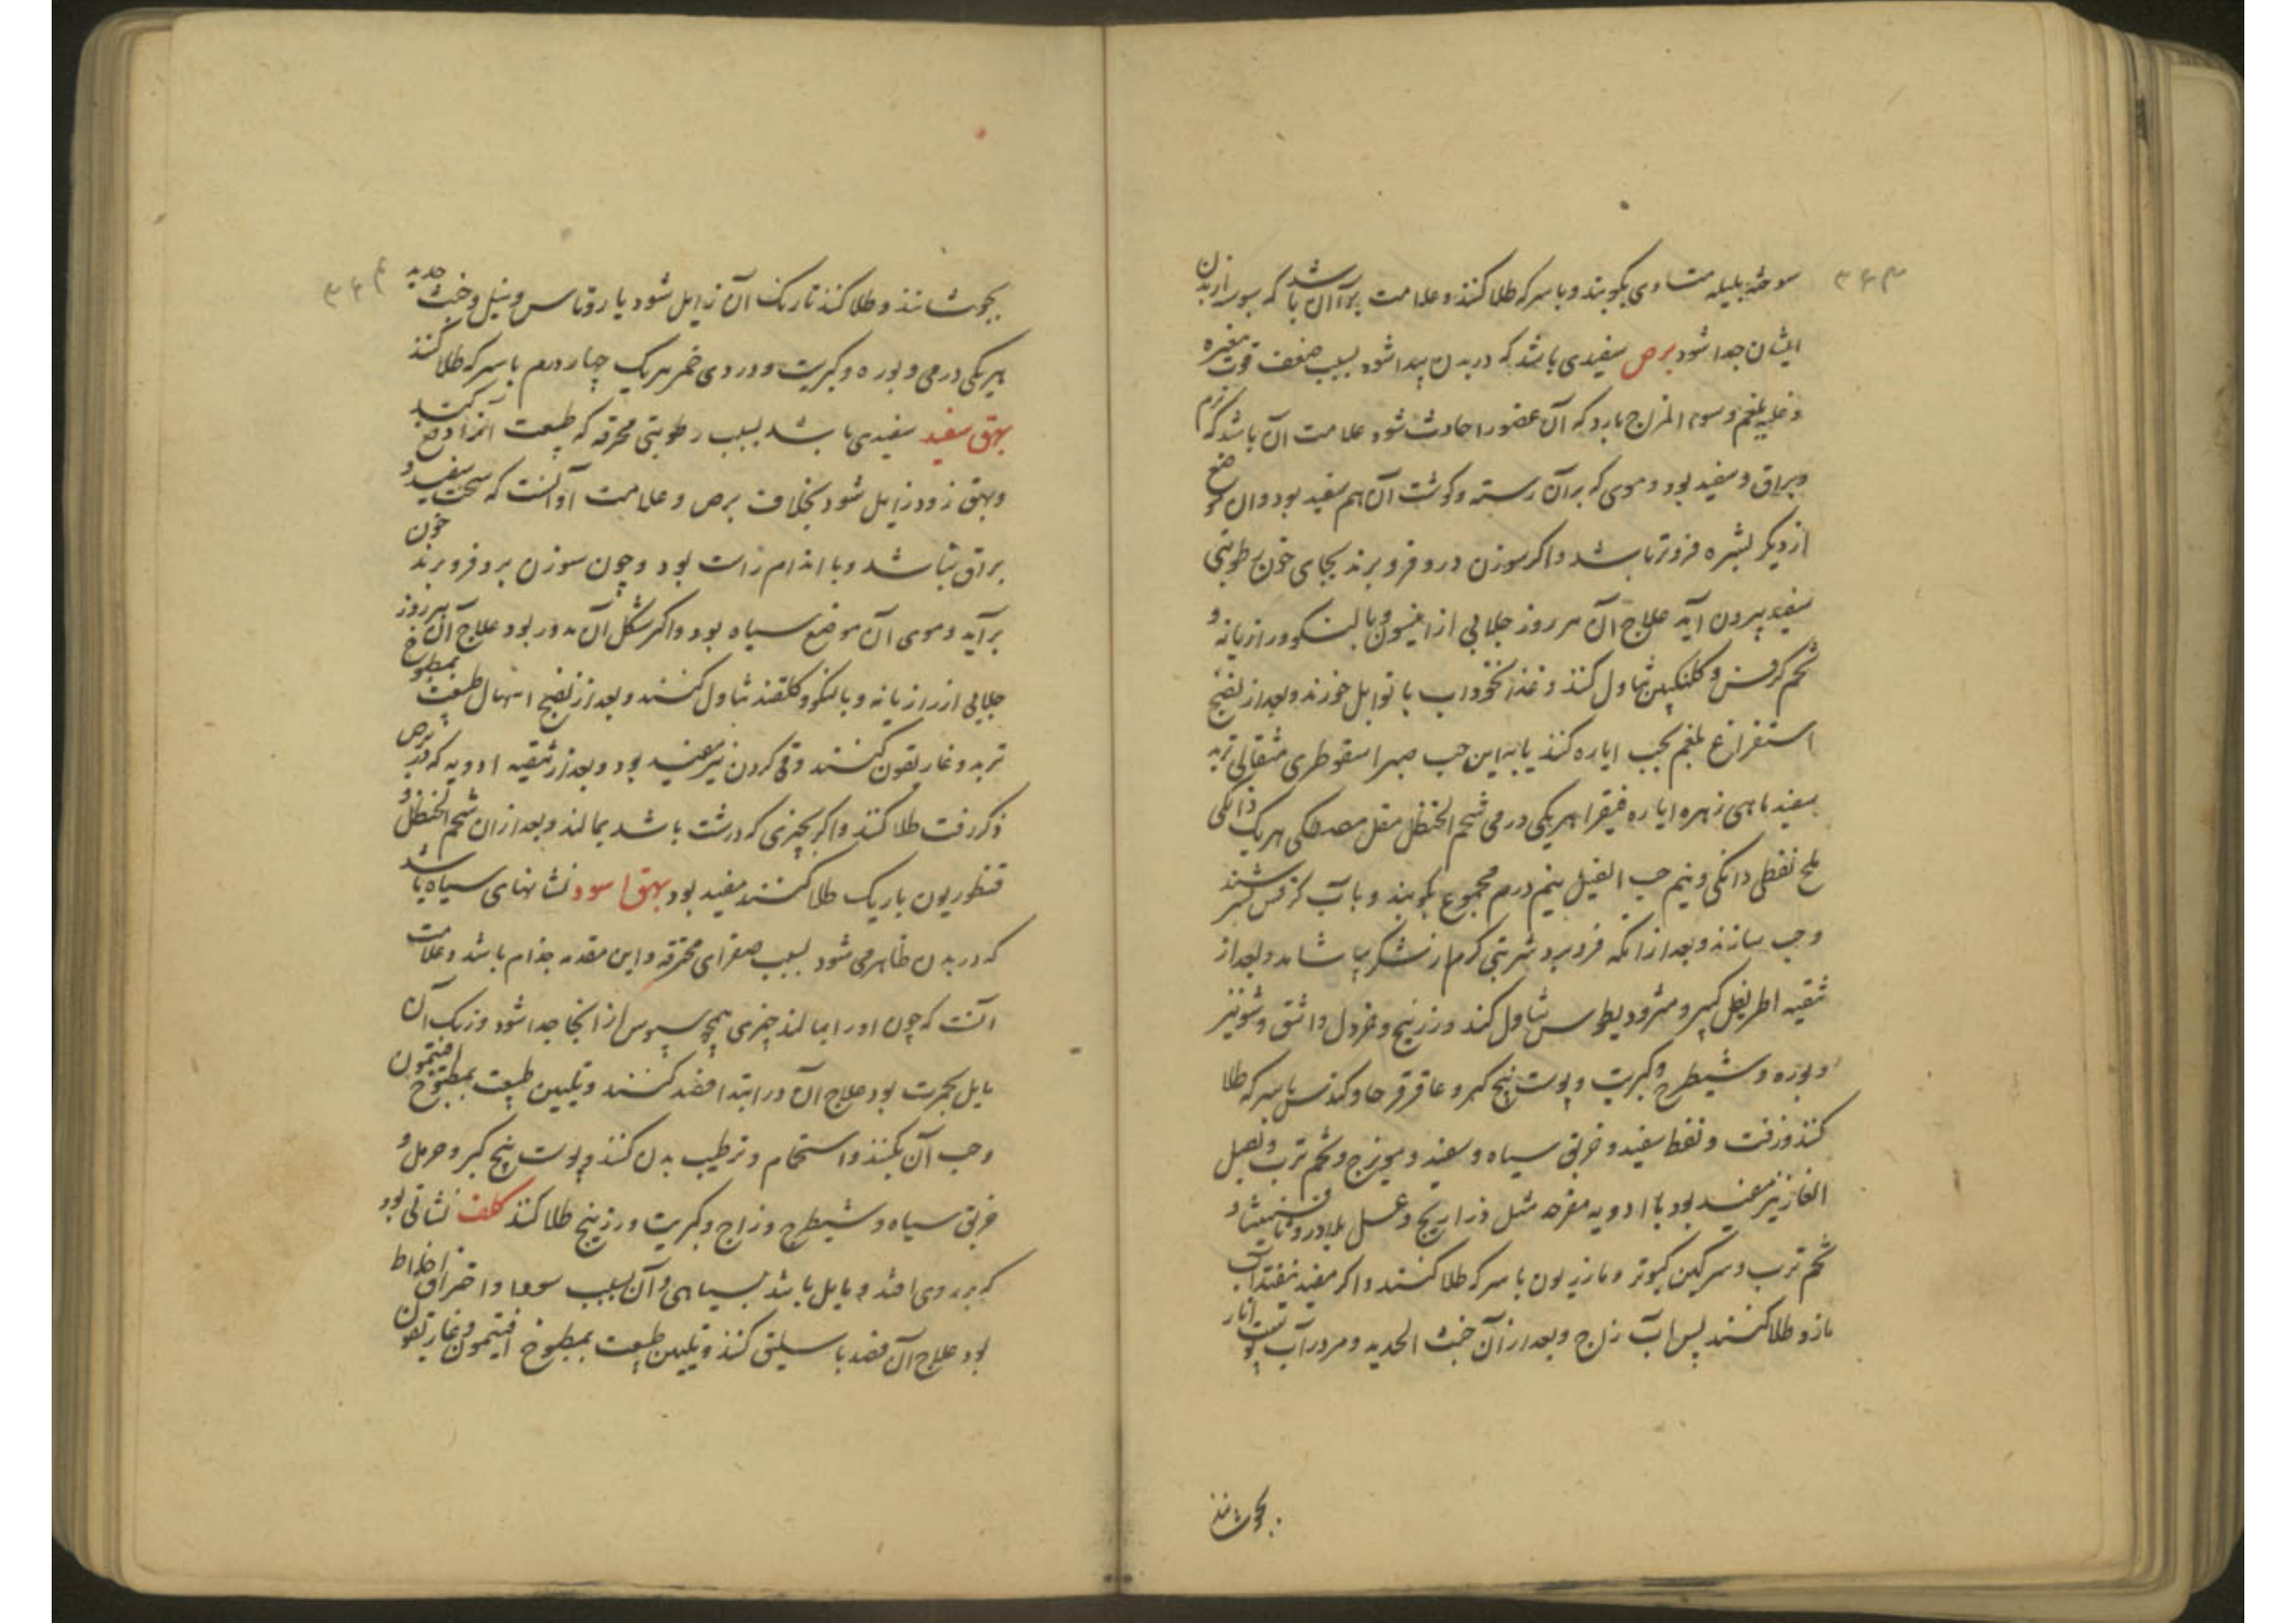 ۳۶۳
سوخته بلیله متساوی بکوبند و با سرکه طلا کنند و علامت برآآن باشد که سبوسه از بدن
ایشان جدا شود برص سفیدی باشد که در بدن پیدا شود بسبب ضعف قوت مغیره
و غلبه بلغم و سوء المزاج بارد که آن عضو را حادث شود علامت آن باشد که نرم
و براق و سفید بود و موی که بر آن رسته و کوشت آن هم سفید بود و ان موضع
از دیگر بشره فروتر باشد و اکر سوزن درو فرو برند بجای خون رطوبتی
سفید بیرون آید علاج آن هر روز جلابی از انیسون و بالنکو و رازیانه و
تخم کرفس و کلنکبین تناول کنند و غذا نخوداب با توابل خورند و بعد از نضج
استفراغ بلغم بحب ایاره کنند یا به این حب صبر اسقوطری مثقالی تربد
سفید ماهی زهره ایاره فیقرا هریکی درمی شحم الحنظل مقل مصطکی هریک دانکی
ملح نفطی دانکی و نیم حب النیل نیم درم مجموع بکوبند و با آب کرفس بسرشند
و حب سازند و بعد از انکه فرو برد شربتی کرم از شکر بیاشامد و بعد از
تنقیه اطریفل کبیر و مثرودیطوس تناول کند و زرنیخ و خردل و اشق و شونیز
و بوره و شیطرج و کبریت و پوست بیخ کبر و عاقرقرحا و کندس با سرکه طلا
کنند و زفت و نفط سفید و خربق سیاه و سفید و میویزج و تخم ترب و بصل
الفار نیز مفید بود با ادویه مقرحه مثل ذراریح و عسل بلادر و تافسیا و
تخم ترب و سرکین کبوتر و مازریون با سرکه طلا کنند و اکر مفید نیفتد آب
مازو طلا کنند پس آب زاج و بعد از آن خبث الحدید و مرو در آب پوست انار
بجوشانند
۳۶۴
بجوشانند و طلا کنند تا رنک آن زایل شود یا روناس و نیل و خبث حدید
هر یکی درمی و بوره و کبریت و دردی خمر هر یک چهار درم با سرکه طلا کنند
بهق سفید سفیدی باشد بسبب رطوبتی محرقه که طبیعت آنرا دفع کند
و بهق زود زایل شود بخلاف برص و علامت او آنست که سخت سفید و
براق نباشد و با اندام راست بود و چون سوزن برو فرو برند خون
برآید و موی آن موضع سیاه بود و اکثر شکل آن مدور بود علاج آن هر روز
جلابی از رازیانه و بالنکو و کلقند تناول کنند و بعد از نضج اسهال طبیعت بمطبوخ
تربد و غاریقون کنند و قی کردن نیز مفید بود و بعد از تنقیه ادویه که در برص
ذکر رفت طلا کنند و اکر بچیزی که درشت باشد بمالند و بعد از ان شحم الحنظل و
قنطوریون باریک طلا کنند مفید بود بهق اسود نشانهای سیاه باشد
که در بدن ظاهر می شود بسبب صفرای محترقه و این مقدمه جذام باشد و علامت
آنست که چون او را بمالند چیزی همچو سبوس از انجا جدا شود و رنک آن
مایل بحمرت بود علاج آن در ابتدا فصد کنند و تلیین طبیعت بمطبوخ افتیمون
و حب آن بکنند و استحمام و ترطیب بدن کنند و پوست بیخ کبر و حرمل و
خربق سیاه و شیطرج و زاج و کبریت و زرنیخ طلا کنند کلف نشانی بود
که بر روی افتد و مایل باشد بسیاهی و آن بسبب سودا و احتراق اخلاط
بود علاج آن فصد باسلیق کنند و تلیین طبیعت بمطبوخ افتیمون و غاریقون